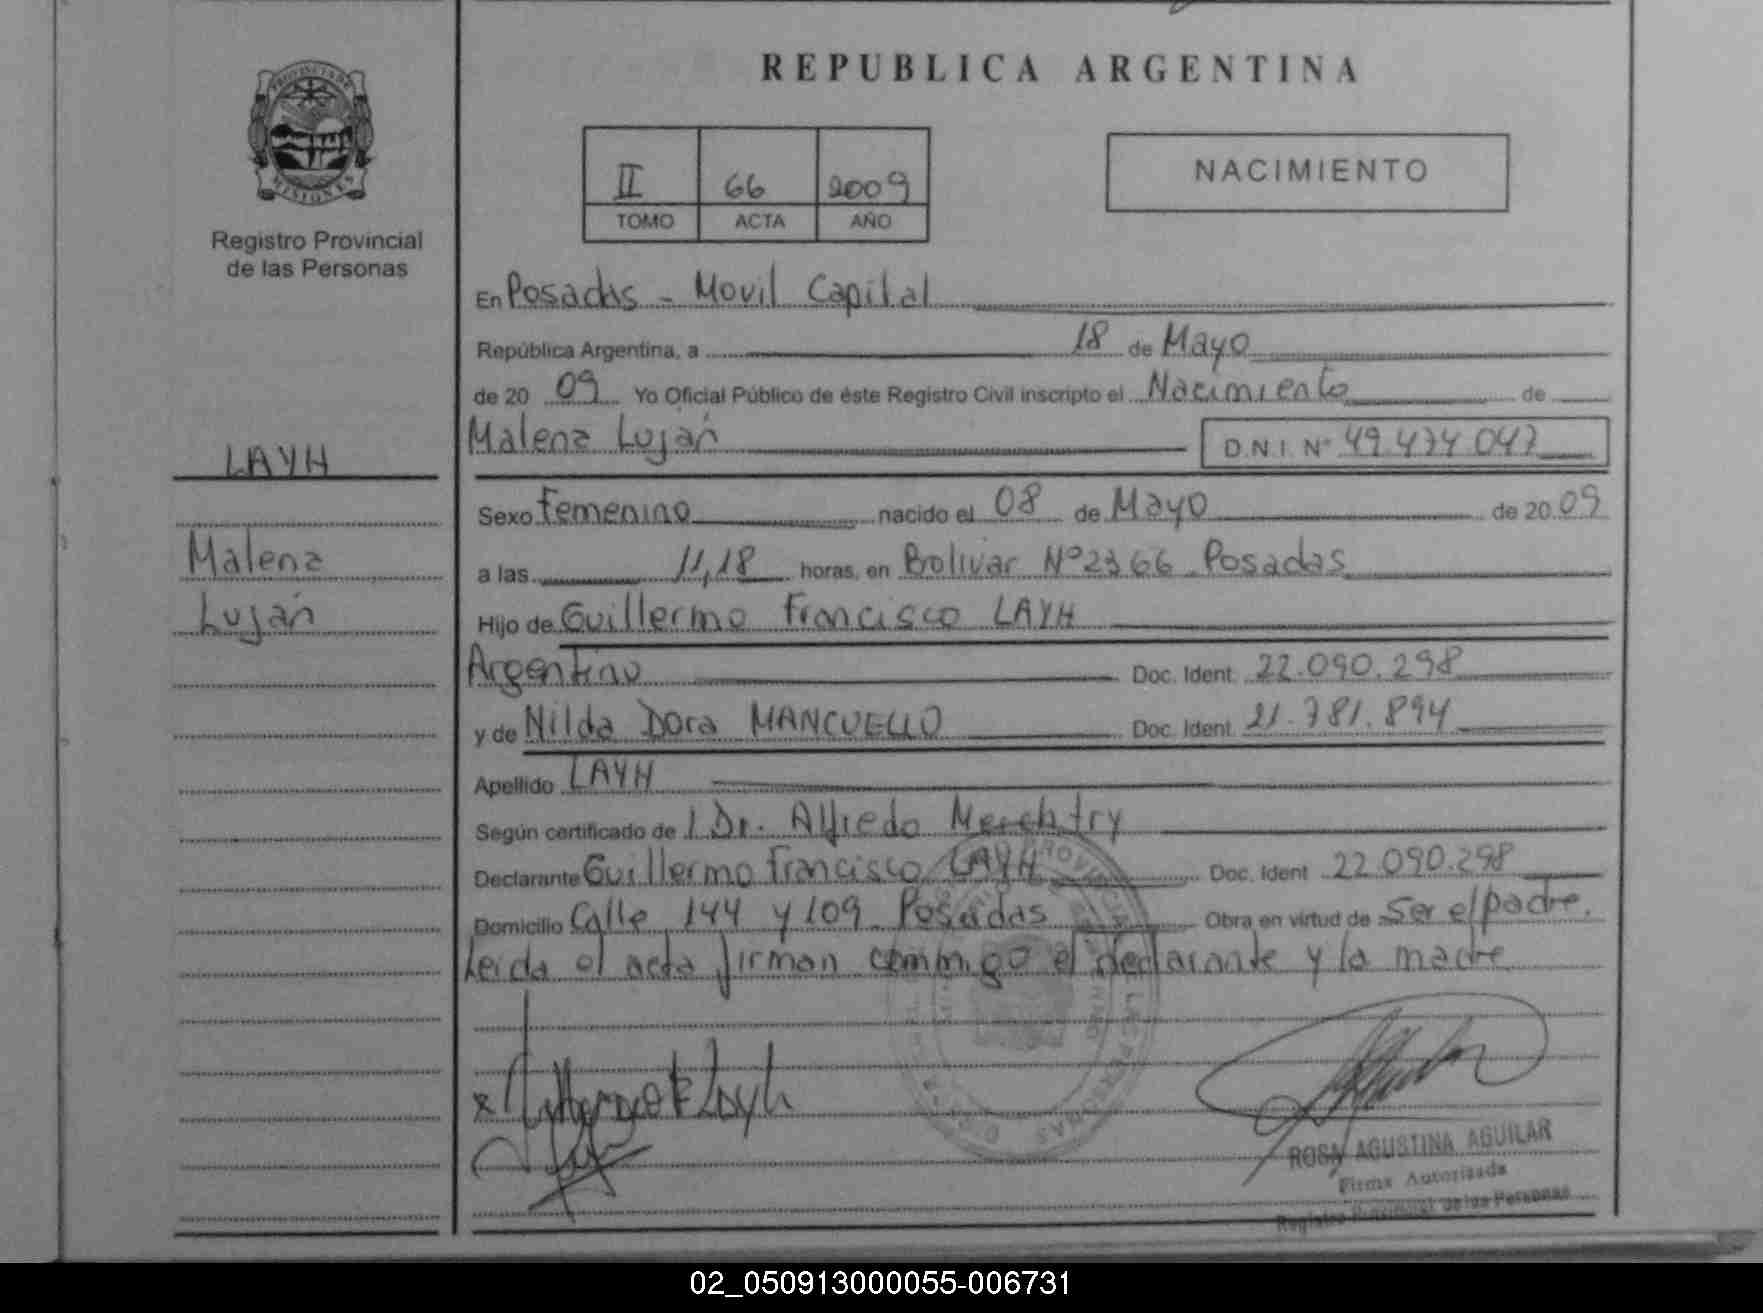 REPUBLICA ARGENTINA
PROVINCIA DE
MISIONES
Registro Provincial
de las Personas
II 66 2009
TOMO ACTA AÑO
NACIMIENTO
En Posadas - Movil Capital
República Argentina, a 18 de Mayo
de 20 09 Yo Oficial Público de éste Registro Civil inscripto el Nacimiento de
Malena Luján D.N.I. Nº 49.474.047
LAYH
Malena
Luján
Sexo Femenino nacido el 08 de Mayo de 20 09
a las 11,18 horas, en Bolivar Nº 2366 Posadas
Hijo de Guillermo Francisco LAYH
Argentino Doc. Ident. 22.090.298
y de Nilda Dora MANCUELLO Doc. Ident. 21.781.894
Apellido LAYH
Según certificado de l Dr. Alfredo
Declarante Guillermo Francisco LAYH Doc. Ident 22.090.298
Domicilio Calle 144 y 109 Posadas Obra en virtud de Ser el padre.
Leida el acta firman conmigo el declarante y la madre
ROSA AGUSTINA AGUILAR
Firma Autorizada
Registro Provincial de las Personas
02_050913000055-006731